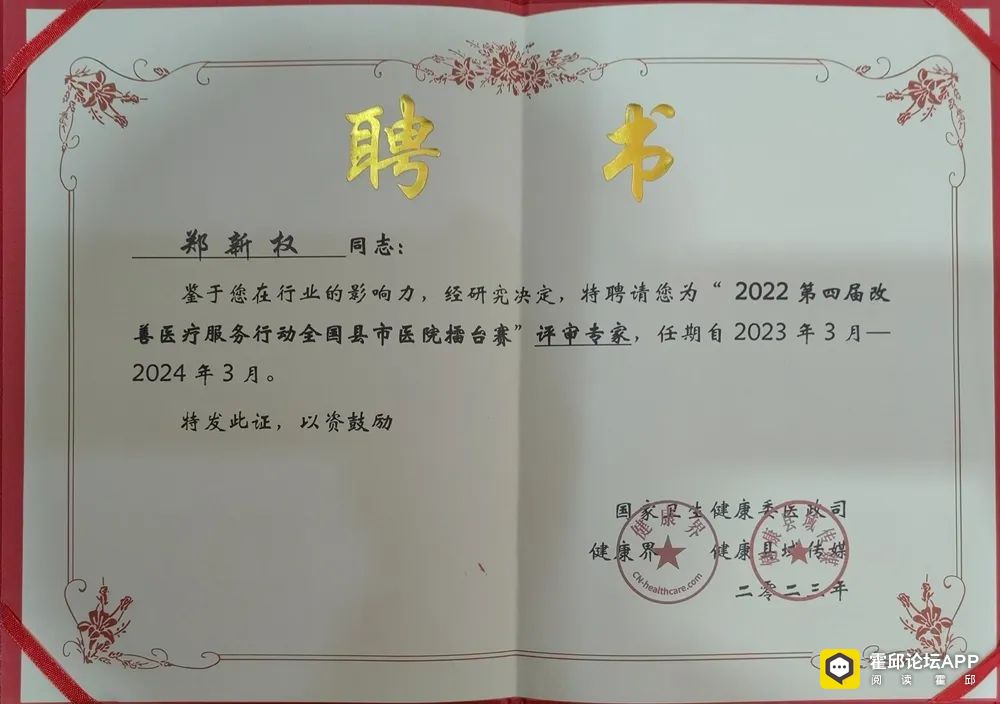 聘书
郑新权 同志：
鉴于您在行业的影响力，经研究决定，特聘请您为“2022第四届改
善医疗服务行动全国县市医院擂台赛”评审专家，任期自2023年3月—
2024年3月。
特发此证，以资鼓励
国家卫生健康委医政司
健康界 健康县域传媒
二零二三年
健康界
CN-healthcare.com
健康县域传媒
霍邱论坛APP
阅读霍邱